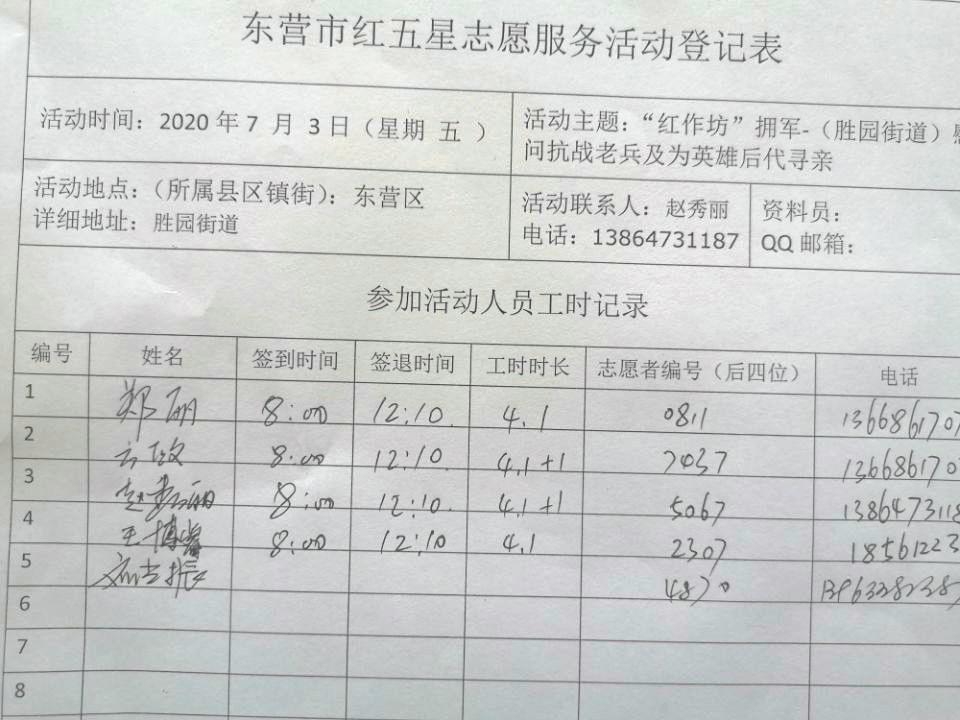 东营市红五星志愿服务活动登记表
活动时间：2020年7 月 3日（星期 五 ） 活动主题：“红作坊”拥军-（胜园街道）慰
问抗战老兵及为英雄后代寻亲
活动地点：（所属县区镇街）：东营区 活动联系人：赵秀丽 资料员：
详细地址：胜园街道 电话：13864731187 QQ邮箱：
参加活动人员工时记录
编号 姓名 签到时间 签退时间 工时时长 志愿者编号（后四位） 电话
1 郑丽 8:00 12:10 4.1 0811 1366861707
2 8:00 12:10 4.1+1 7037 136686170
3 赵秀丽 8:00 12:10 4.1+1 5067 1386473118
4 王博睿 8:00 12:10 4.1 2307 18561223
5 4870
6
7
8